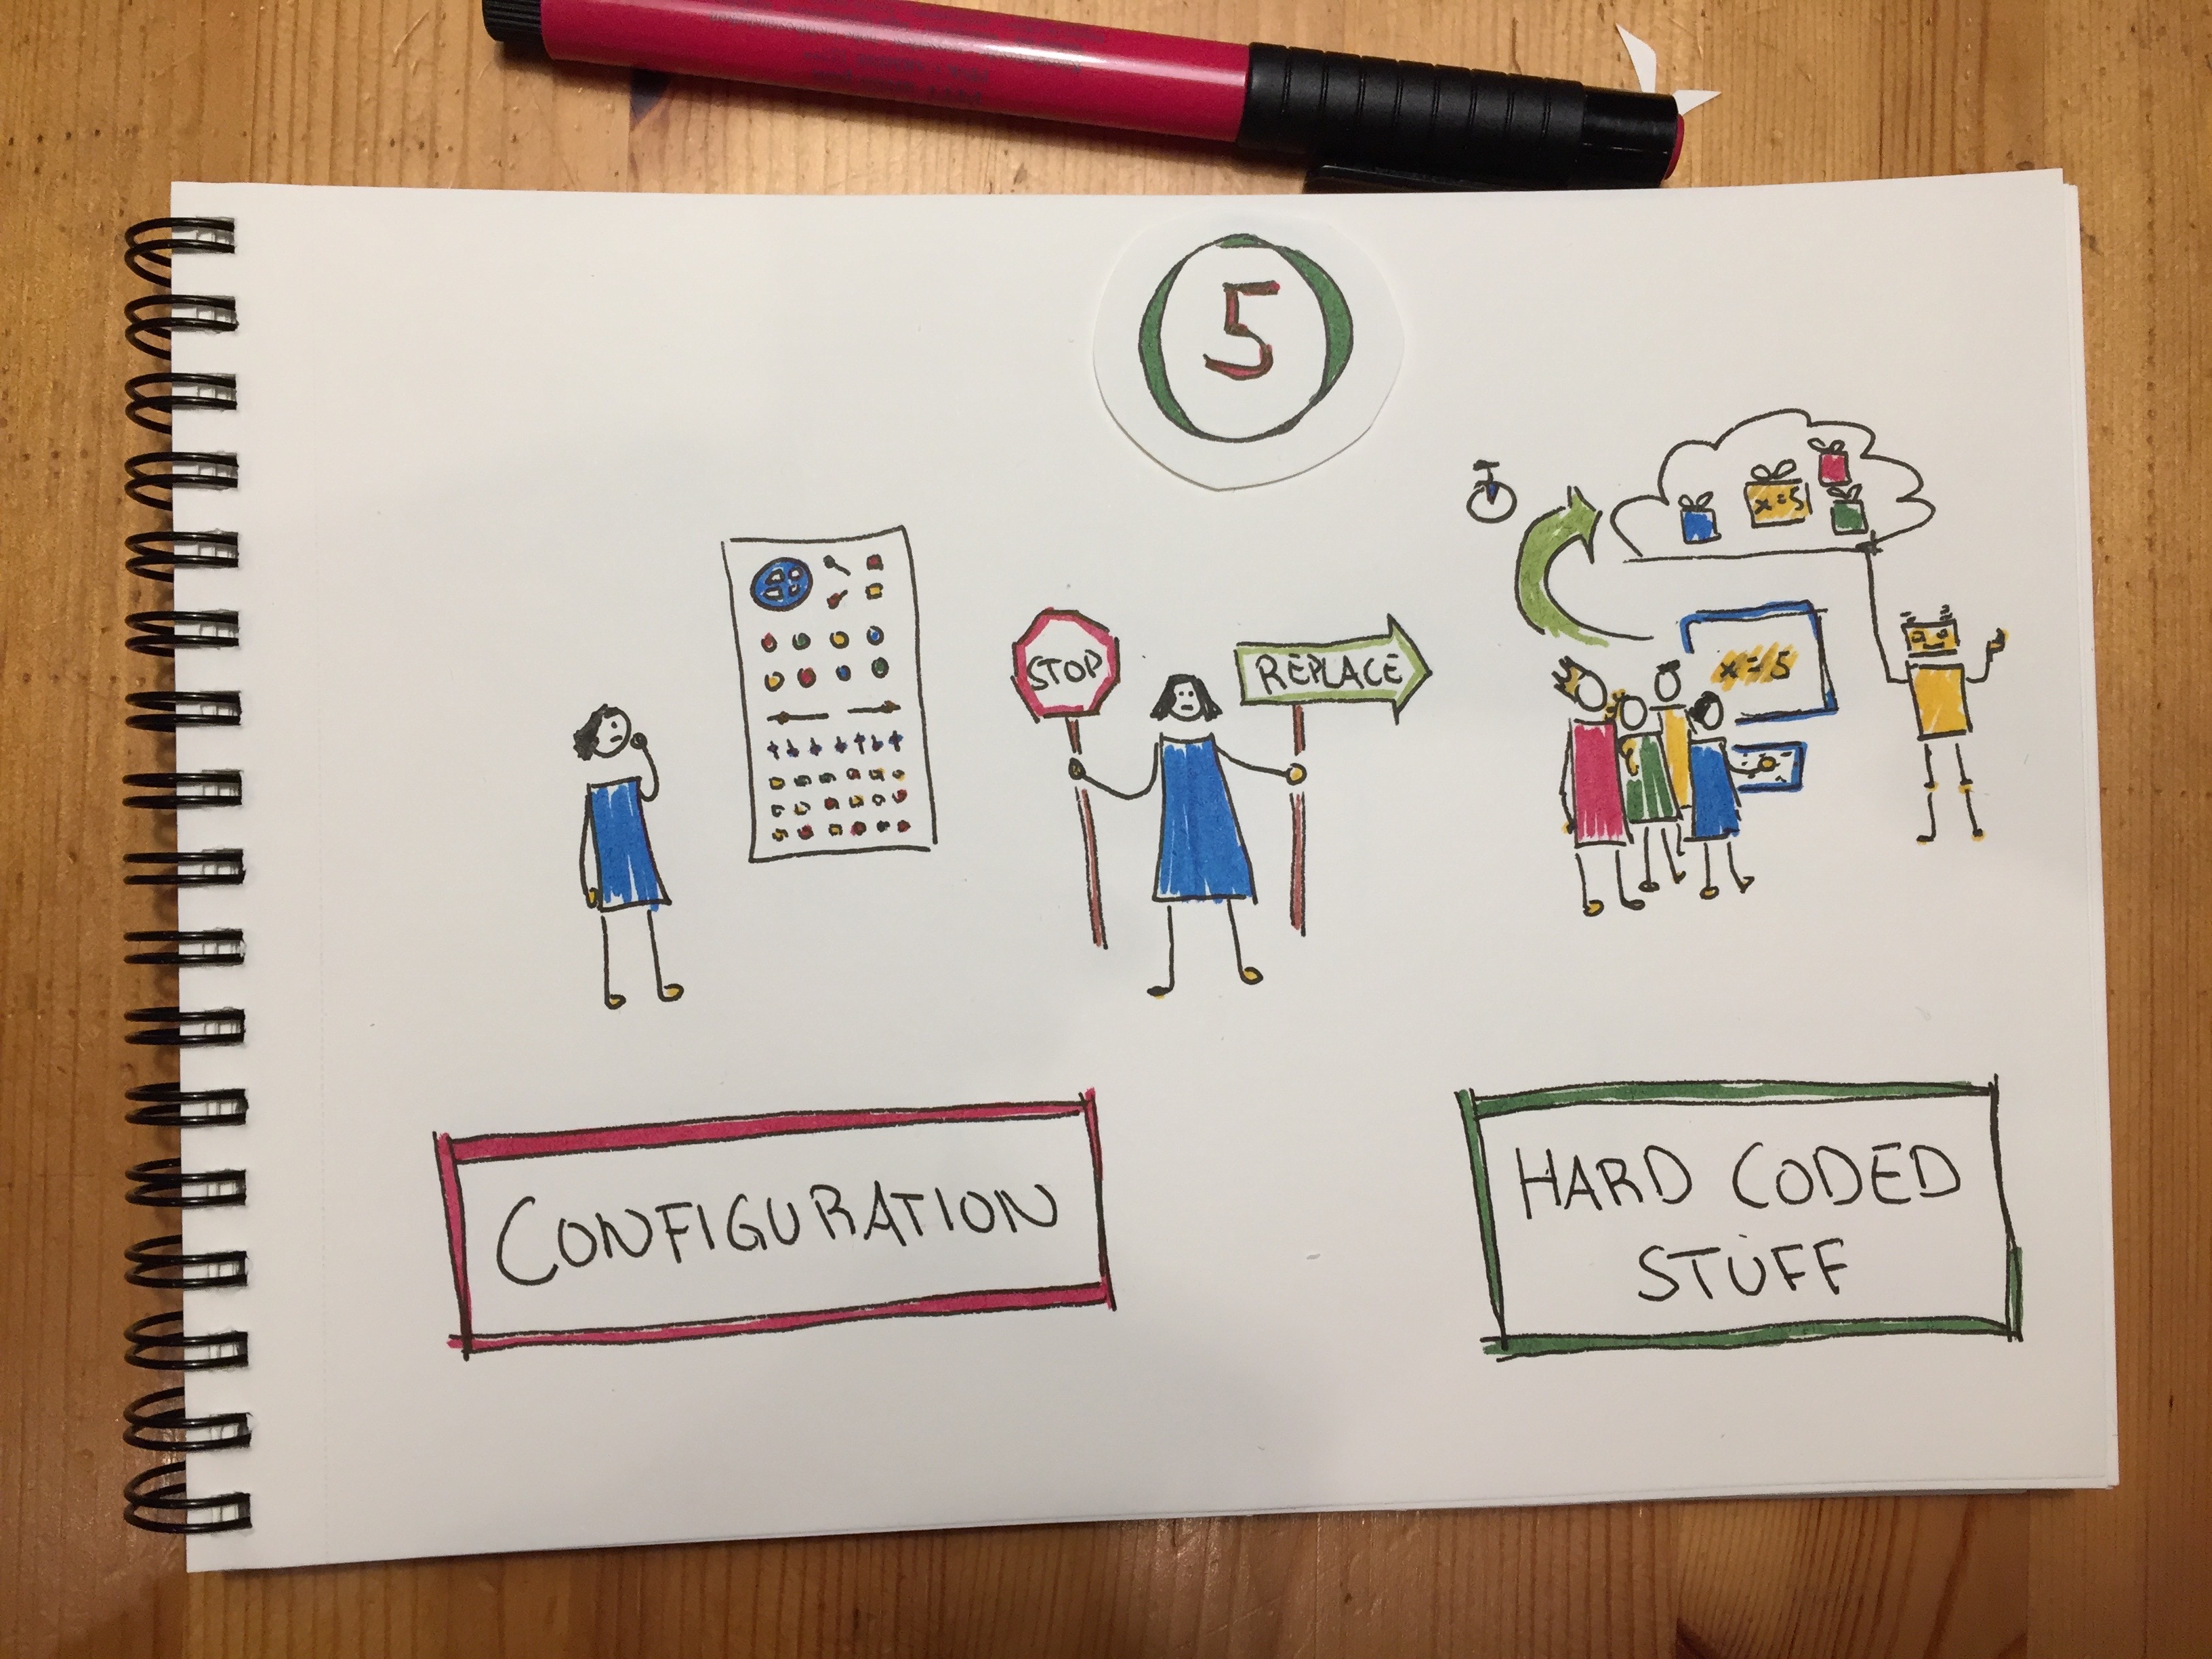 5
x=5
STOP
REPLACE
x=5
CONFIGURATION
HARD CODED
STUFF